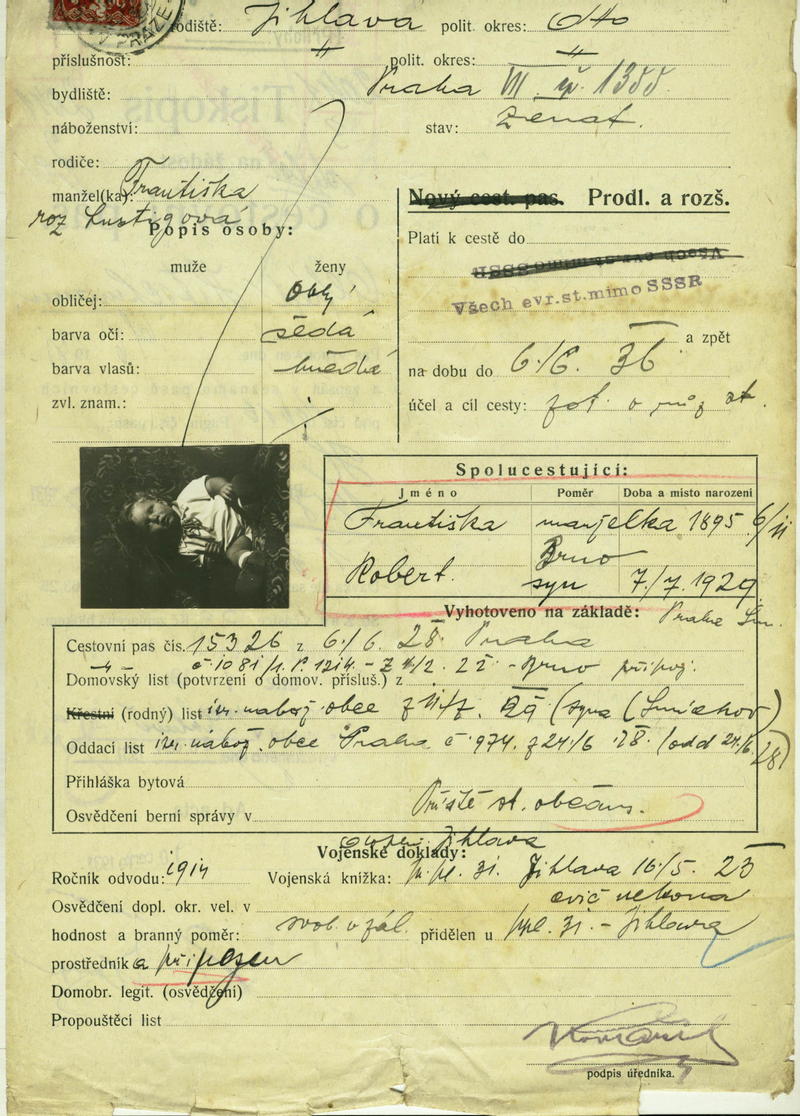 PRAZE
rodiště: Jihlava polit. okres: dto
příslušnost: " polit. okres: "
bydliště: Praha VII. čp. 1355
náboženství: stav: ženat.
rodiče:
manžel(ka): Františka
roz Lustigová
Nový cest. pas. Prodl. a rozš.
Popis osoby:
Platí k cestě do
muže ženy
Všech evr.st.mimo SSSR
obličej: oblý
barva očí: šedá
a zpět
barva vlasů: hnědá
na dobu do 6./6. 36
zvl. znam.:
účel a cíl cesty:
Spolucestující:
Jméno Poměr Doba a místo narození
Františka manželka 1895 6/II
Brno
Robert. syn 7./7. 1929
Vyhotoveno na základě: Praha Sm.
Cestovní pas čís. 15326 z 6./6. 28. Praha
č. 1081/1. P. 1214. - Brno
Domovský list (potvrzení o domov. přísluš.) z
Křestní (rodný) list isr. nábož. obce 29 (syna (Smíchov)
Oddací list isr. nábož. obce Praha č. 974. z 24./6 28. (odd 24./6. 28)
Přihláška bytová
Osvědčení berní správy v Příště st. občans.
Vojenské doklady:
Jihlava
Ročník odvodu: 1914 Vojenská knížka: p. pl. 31. Jihlava 16/5. 23
Osvědčení dopl. okr. vel. v
hodnost a branný poměr: svob. v zál. přidělen u ppl. 31. - Jihlava
prostředník a připojen
Domobr. legit. (osvědčení)
Propouštěcí list
podpis úředníka.